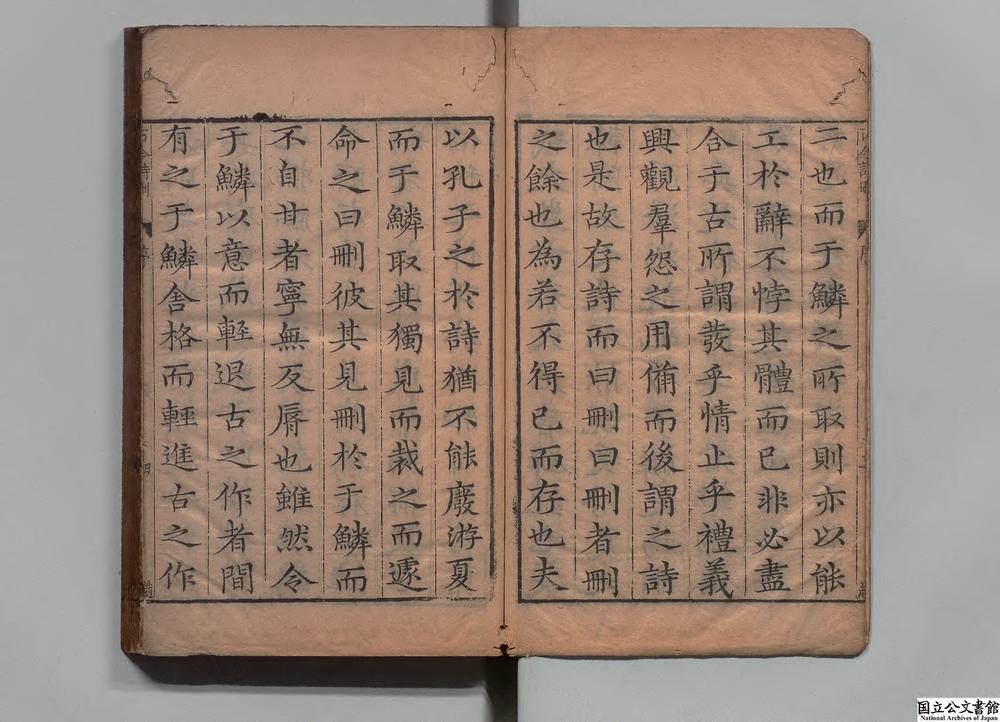 二也而于鱗之所取則亦以能
工於辭不悖其體而已非必盡
合于古所謂發乎情止乎禮義
興觀羣怨之用俻而後謂之詩
也是故存詩而曰刪曰刪者刪
之餘也為若不得已而存也夫
以孔子之於詩猶不能廢游夏
而于鱗取其獨見而裁之而遽
命之曰刪彼其見刪於于鱗而
不自甘者寧無反脣也雖然令
于鱗以意而輕退古之作者間
有之于鱗舍格而輕進古之作
古今詩刪
序
四
国立公文書館
National Archives of Japan